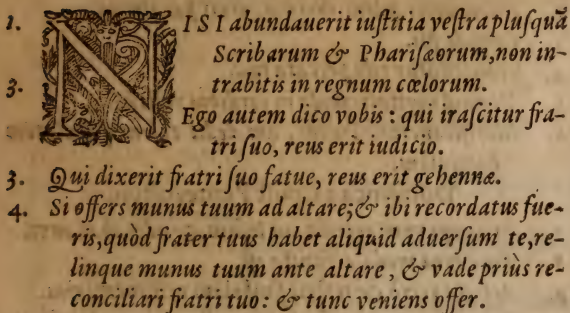 1. NISI abundauerit iuſtitia veſtra pluſquā
Scribarum & Phariſæorum, non in-
3. trabitis in regnum cœlorum.
Ego autem dico vobis : qui iraſcitur fra-
tri ſuo, reus erit iudicio.
3. Qui dixerit fratri ſuo fatue, reus erit gehennæ.
4. Si offers munus tuum ad altare; & ibi recordatus fue-
ris, quòd frater tuus habet aliquid aduerſum te, re-
linque munus tuum ante altare, & vade priùs re-
conciliari fratri tuo : & tunc veniens offer.